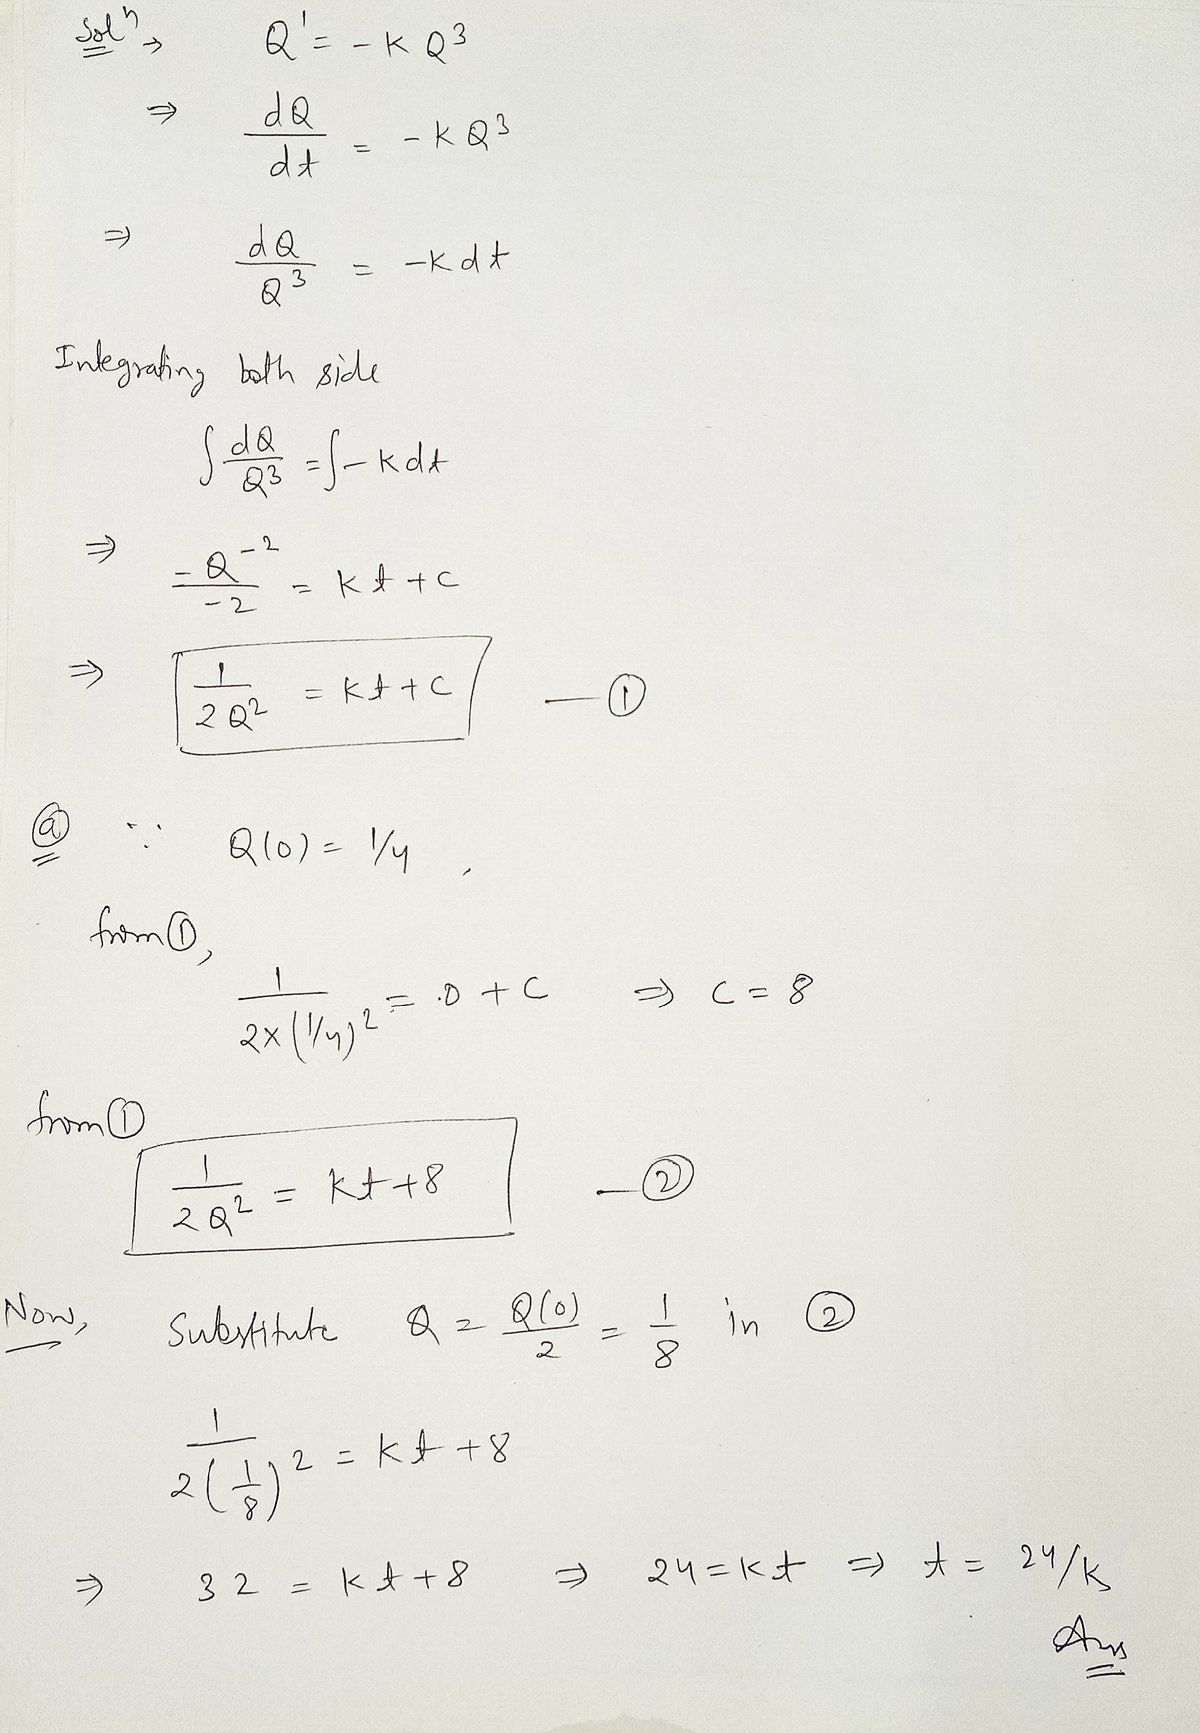 Solⁿ → Q' = -K Q³
⇒ dQ/dt = -K Q³
⇒ dQ/Q³ = -K dt
Integrating both side
∫ dQ/Q³ = ∫ -K dt
⇒ = Q⁻²/-2 = K t + C
⇒ 1/2Q² = Kt + C — ①
ⓐ ∵ Q(0) = 1/4 ,
from ①,
1/2×(1/4)² = 0 + C ⇒ C = 8
from ①
1/2Q² = Kt + 8 — ②
Now, Substitute Q = Q(0)/2 = 1/8 in ②
1/2(1/8)² = Kt + 8
⇒ 32 = Kt + 8 ⇒ 24 = Kt ⇒ t = 24/K
Ans